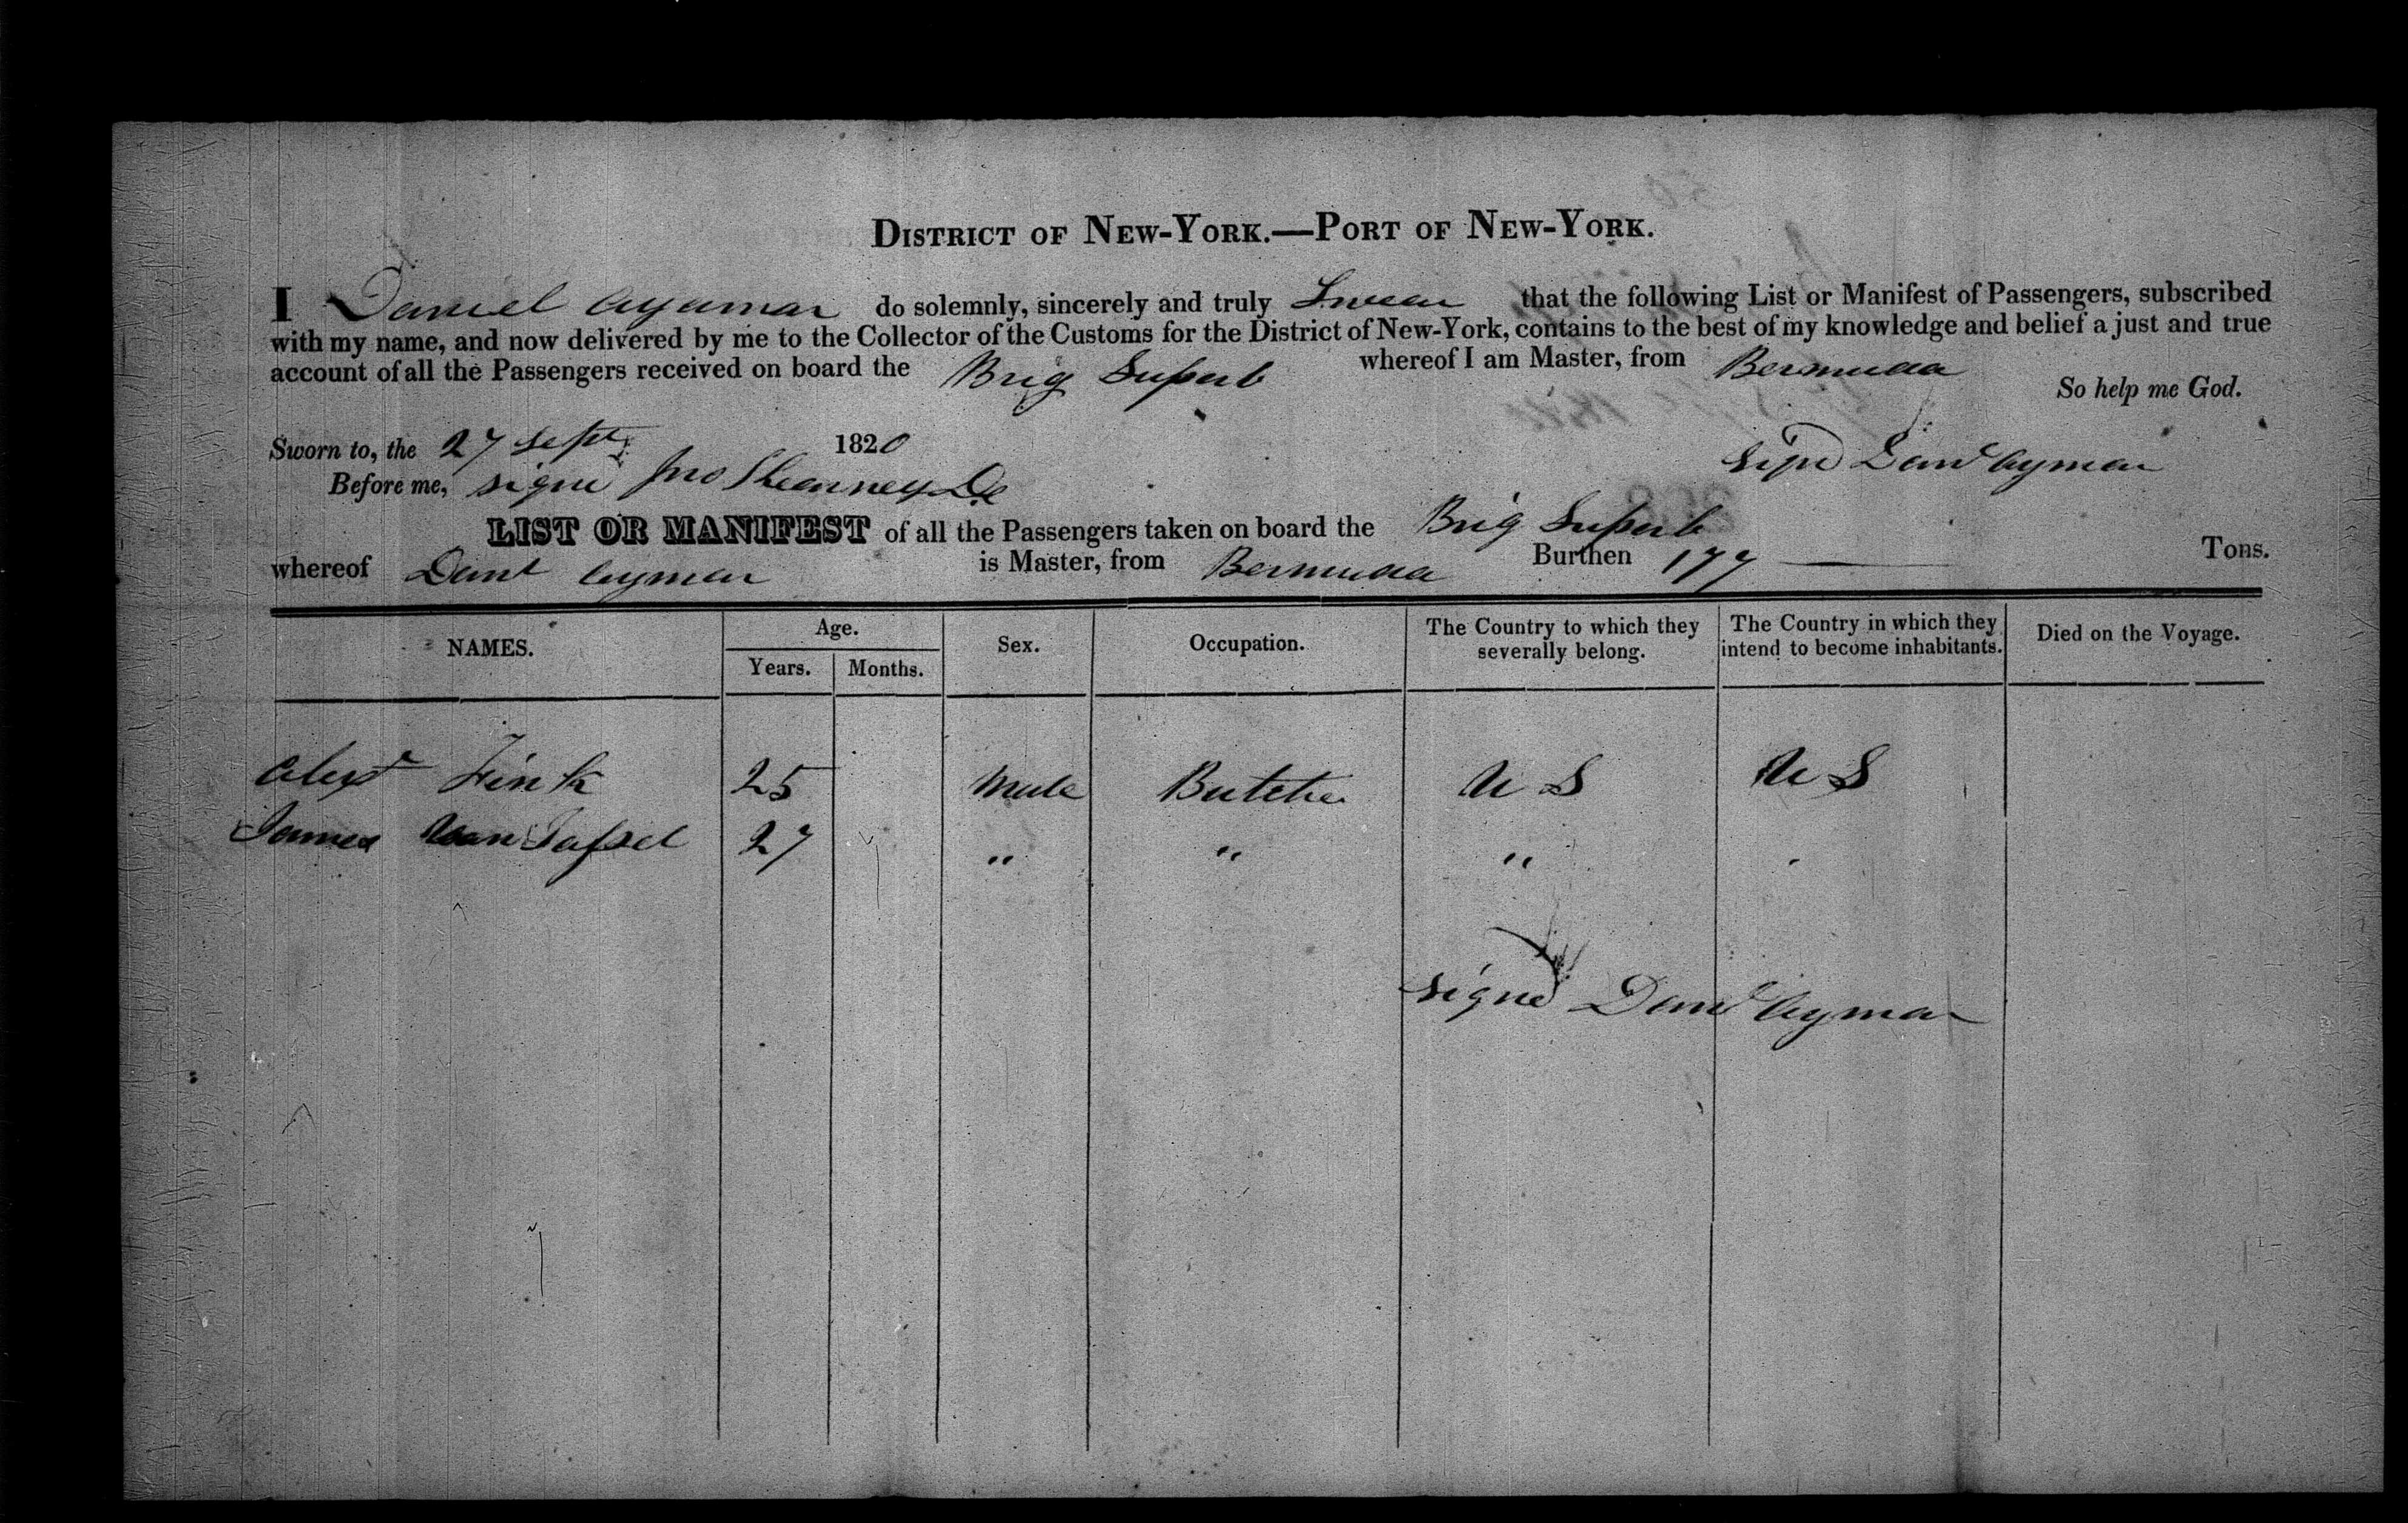 DISTRICT OF NEW-YORK.—PORT OF NEW-YORK.
I Daniel Ayamar do solemnly, sincerely and truly Swear that the following List or Manifest of Passengers, subscribed
with my name, and now delivered by me to the Collector of the Customs for the District of New-York, contains to the best of my knowledge and belief a just and true
account of all the Passengers received on board the Brig Superb whereof I am Master, from Bermuda
So help me God.
Sworn to, the 27 Sept 1820
Signd Danl Aymar
Before me, signd Jno
LIST OR MANIFEST of all the Passengers taken on board the Brig Superb
whereof Danl Aymar is Master, from Bermuda Burthen 177 Tons.
NAMES. Age. Sex. Occupation. The Country to which they severally belong. The Country in which they intend to become inhabitants. Died on the Voyage.
Years. Months.
Alexr Fink 25 Male Butcher U S U S
James Van Tassel 27 " " " "
Signd Danl Aymar